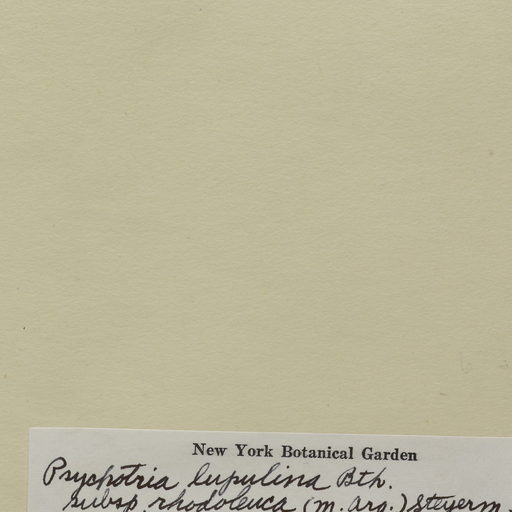 New York Botanical Garden
Psychotria lupulina Bth.
subsp. rhodoleuca (M. Arg.) Steyerm.